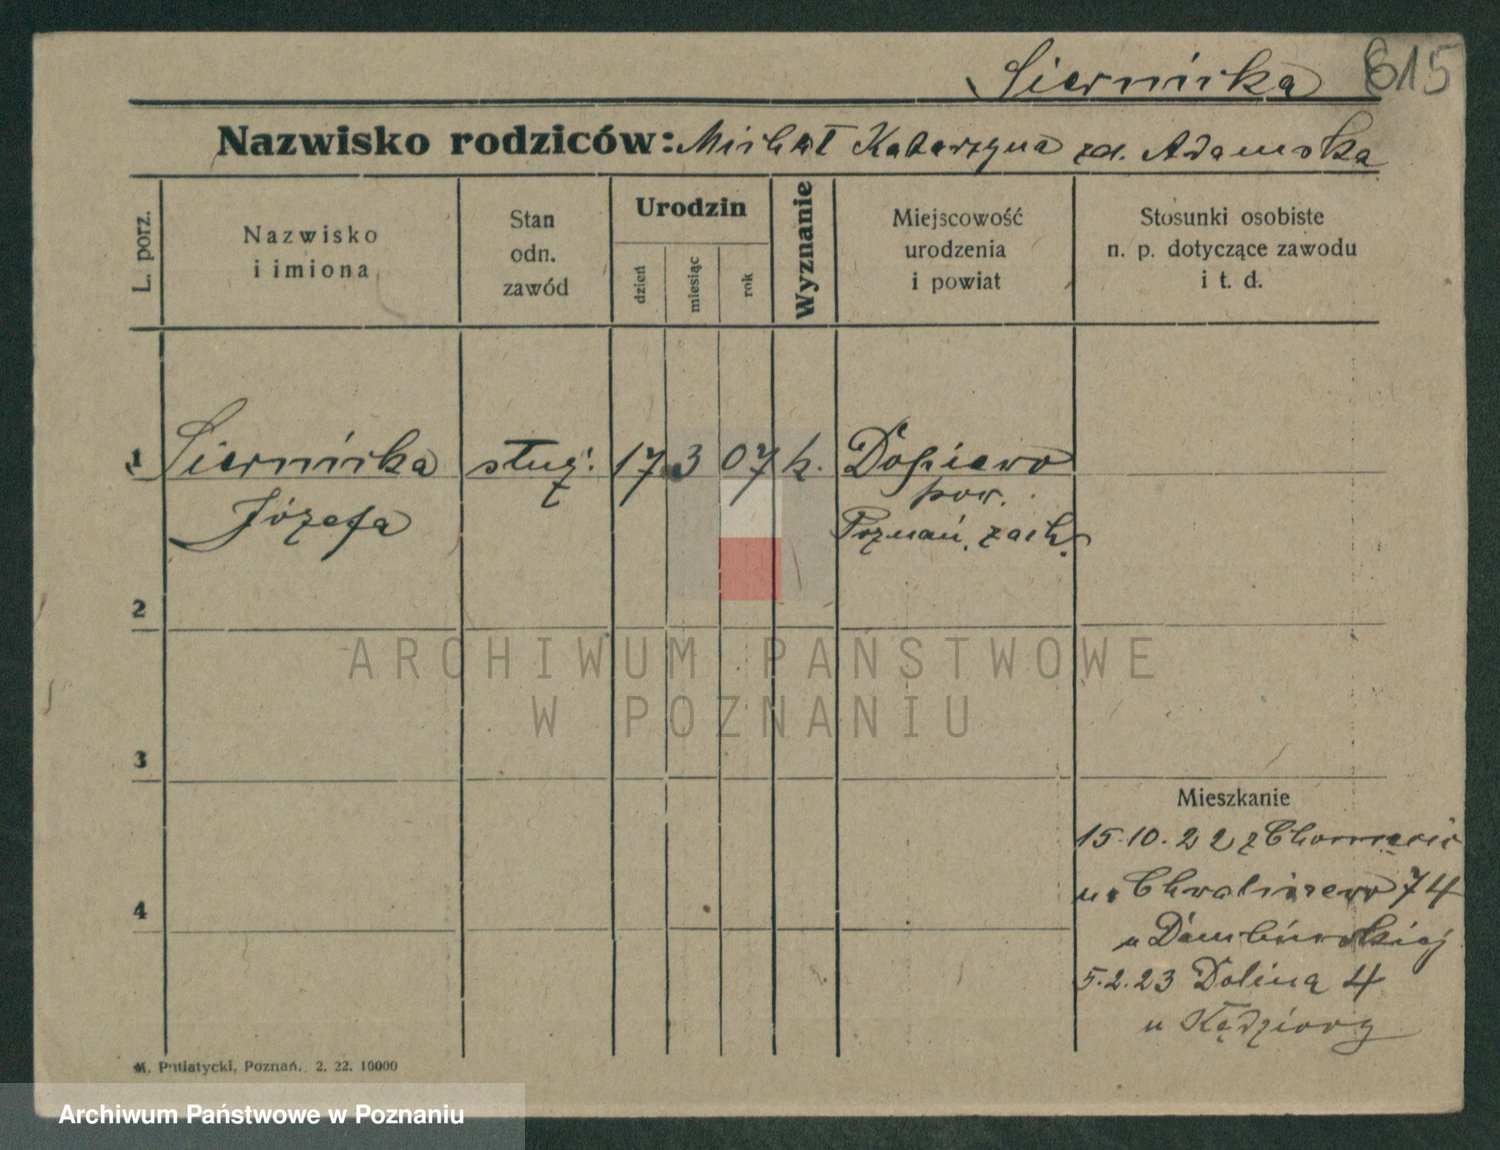 Siernicka 615
Nazwisko rodziców: Michał Katarzyna zd. Adamska
L. porz.
Nazwisko i imiona
Stan odn. zawód
Urodzin
dzień
miesiąc
rok
Wyznanie
Miejscowość urodzenia i powiat
Stosunki osobiste n. p. dotyczące zawodu i t. d.
1 Siernicka służ. 17 3 07 k. Dopiewo
Józefa pow.
Poznań. zach.
2
3
4
Mieszkanie
15.10.22 z
u. Chwaliszewo 74
u
5.2.23 Dolina 4
u Kędziory
M. Putiatycki, Poznań. 2. 22. 10000
ARCHIWUM PAŃSTWOWE
W POZNANIU
Archiwum Państwowe w Poznaniu